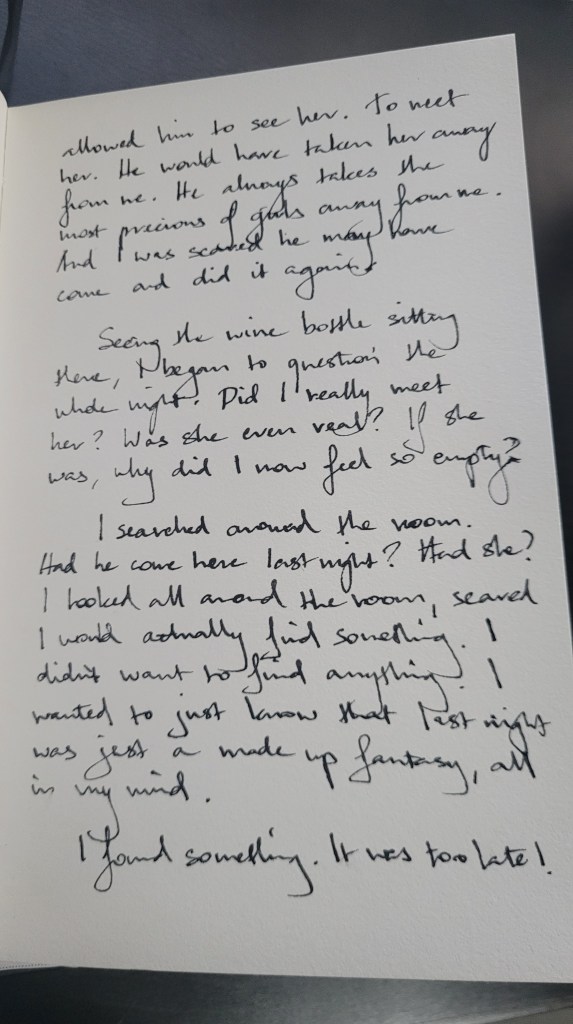 allowed him to see her. To meet
her. He would have taken her away
from me. He always takes the
most precious of girls away from me.
And I was scared he may have
come and did it again.
Seeing the wine bottle sitting
there, I began to question the
whole night. Did I really meet
her? Was she even real? If she
was, why did I now feel so empty?
I searched around the room.
Had he come here last night? Had she?
I looked all around the room, scared
I would actually find something. I
didn't want to find anything. I
wanted to just know that last night
was just a made up fantasy, all
in my mind.
I found something. It was too late!